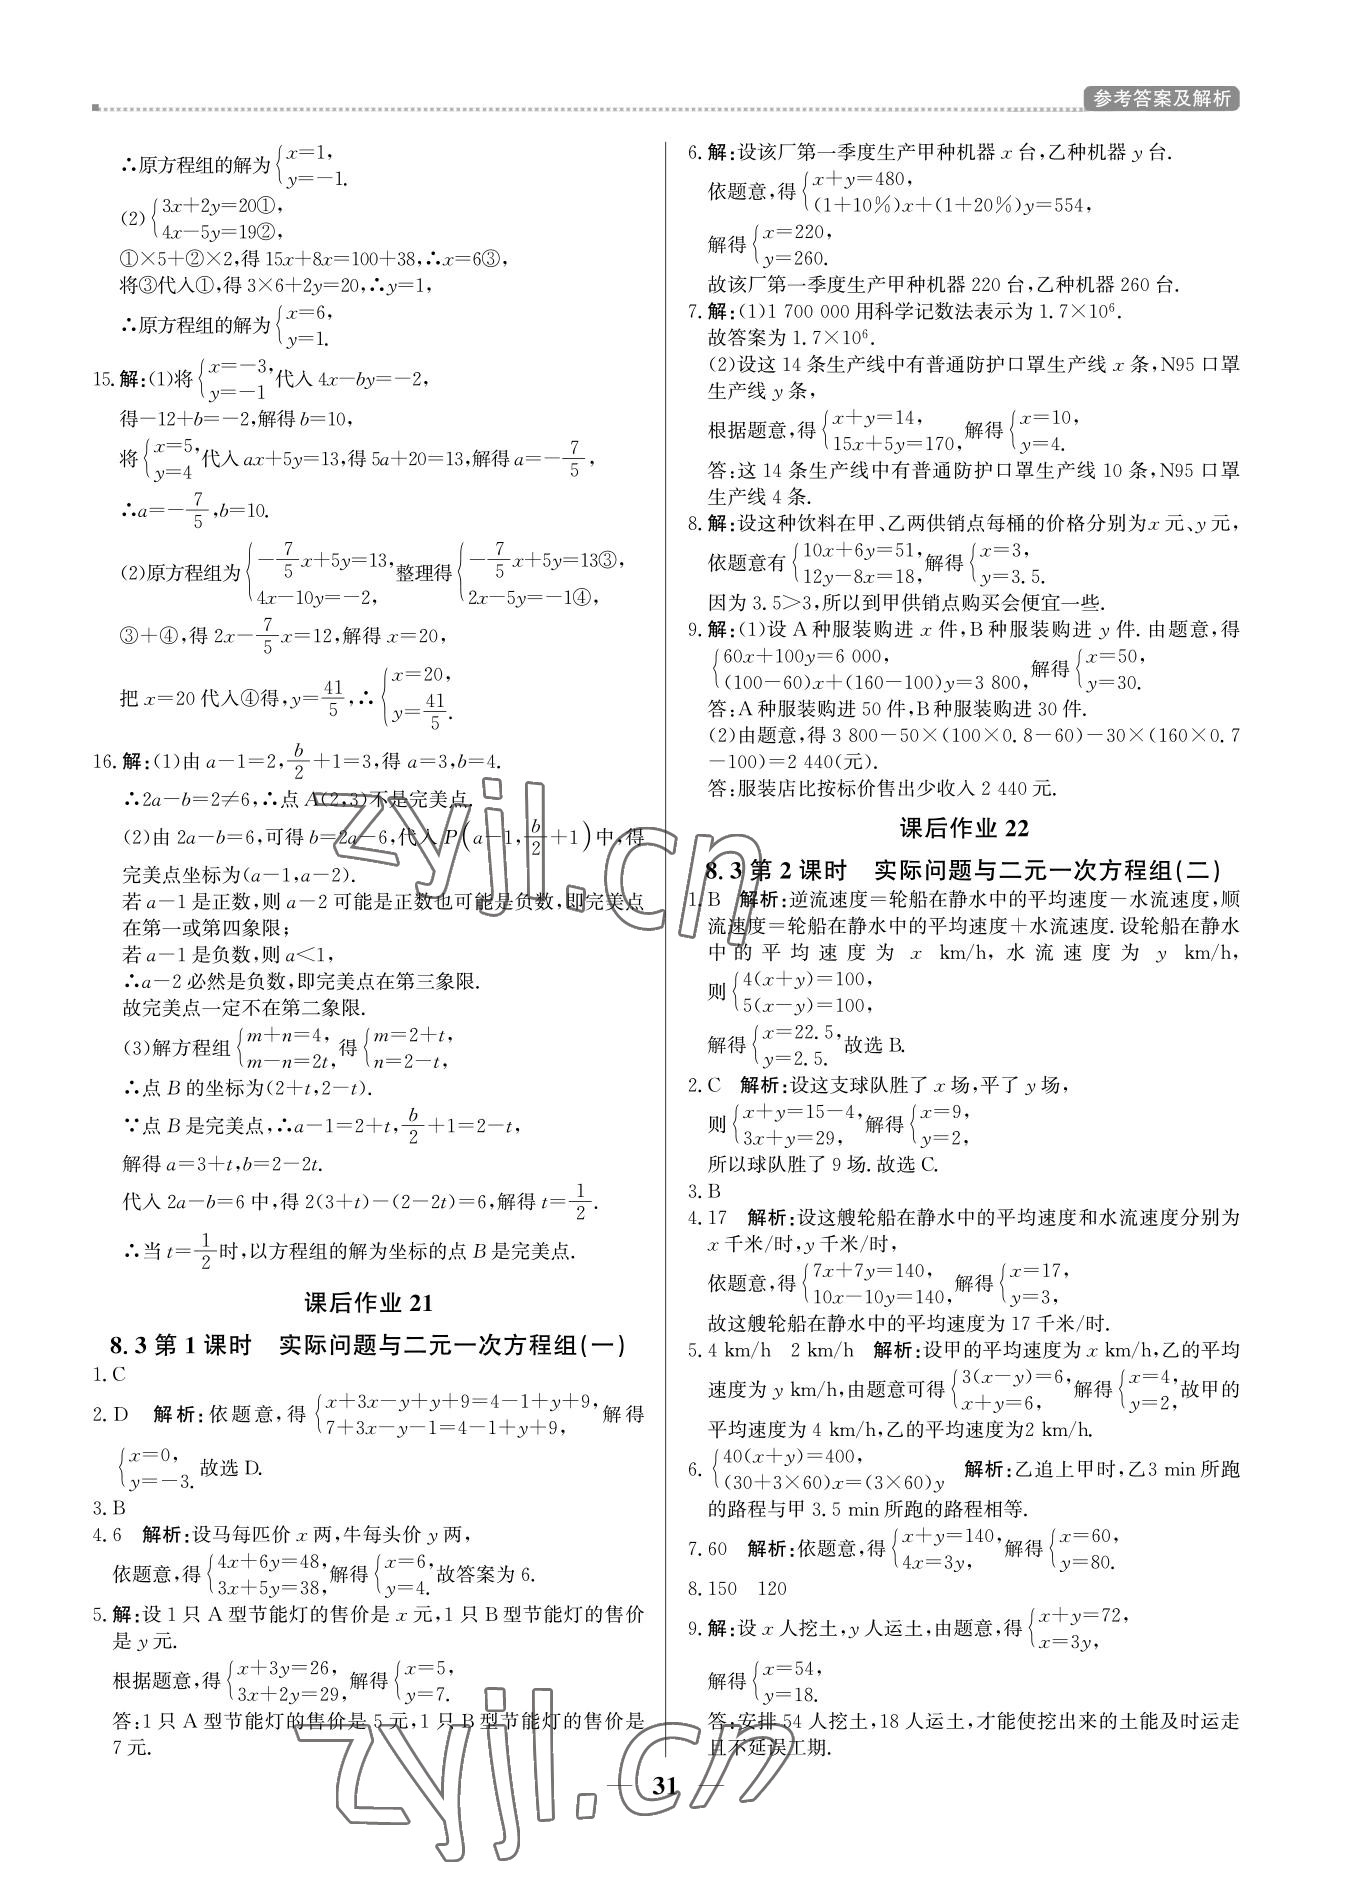 参考答案及解析
∴原方程组的解为{x=1, y=-1.
(2){3x+2y=20①, 4x-5y=19②,
①×5+②×2,得15x+8x=100+38,∴x=6③,
将③代入①,得3×6+2y=20,∴y=1,
∴原方程组的解为{x=6, y=1.
15.解:(1)将{x=-3, y=-1代入4x-by=-2,
得-12+b=-2,解得b=10,
将{x=5, y=4代入ax+5y=13,得5a+20=13,解得a=-7/5,
∴a=-7/5,b=10.
(2)原方程组为{-7/5x+5y=13, 4x-10y=-2,整理得{-7/5x+5y=13③, 2x-5y=-1④,
③+④,得2x-7/5x=12,解得x=20,
把x=20代入④得,y=41/5,∴{x=20, y=41/5.
16.解:(1)由a-1=2,b/2+1=3,得a=3,b=4.
∴2a-b=2≠6,∴点A(2,3)不是完美点.
(2)由2a-b=6,可得b=2a-6,代入P(a-1,b/2+1)中,得
完美点坐标为(a-1,a-2).
若a-1是正数,则a-2可能是正数也可能是负数,即完美点
在第一或第四象限;
若a-1是负数,则a<1,
∴a-2必然是负数,即完美点在第三象限.
故完美点一定不在第二象限.
(3)解方程组{m+n=4, m-n=2t,得{m=2+t, n=2-t,
∴点B的坐标为(2+t,2-t).
∵点B是完美点,∴a-1=2+t,b/2+1=2-t,
解得a=3+t,b=2-2t.
代入2a-b=6中,得2(3+t)-(2-2t)=6,解得t=1/2.
∴当t=1/2时,以方程组的解为坐标的点B是完美点.
课后作业21
8.3第1课时 实际问题与二元一次方程组(一)
1.C
2.D 解析:依题意,得{x+3x-y+y+9=4-1+y+9, 7+3x-y-1=4-1+y+9,解得
{x=0, y=-3.故选D.
3.B
4.6 解析:设马每匹价x两,牛每头价y两,
依题意,得{4x+6y=48, 3x+5y=38,解得{x=6, y=4.故答案为6.
5.解:设1只A型节能灯的售价是x元,1只B型节能灯的售价
是y元.
根据题意,得{x+3y=26, 3x+2y=29,解得{x=5, y=7.
答:1只A型节能灯的售价是5元,1只B型节能灯的售价是
7元.
6.解:设该厂第一季度生产甲种机器x台,乙种机器y台.
依题意,得{x+y=480, (1+10%)x+(1+20%)y=554,
解得{x=220, y=260.
故该厂第一季度生产甲种机器220台,乙种机器260台.
7.解:(1)1 700 000用科学记数法表示为1.7×10⁶.
故答案为1.7×10⁶.
(2)设这14条生产线中有普通防护口罩生产线x条,N95口罩
生产线y条,
根据题意,得{x+y=14, 15x+5y=170,解得{x=10, y=4.
答:这14条生产线中有普通防护口罩生产线10条,N95口罩
生产线4条.
8.解:设这种饮料在甲、乙两供销点每桶的价格分别为x元、y元,
依题意有{10x+6y=51, 12y-8x=18,解得{x=3, y=3.5.
因为3.5>3,所以到甲供销点购买会便宜一些.
9.解:(1)设A种服装购进x件,B种服装购进y件.由题意,得
{60x+100y=6 000, (100-60)x+(160-100)y=3 800,解得{x=50, y=30.
答:A种服装购进50件,B种服装购进30件.
(2)由题意,得3 800-50×(100×0.8-60)-30×(160×0.7
-100)=2 440(元).
答:服装店比按标价售出少收入2 440元.
课后作业22
8.3第2课时 实际问题与二元一次方程组(二)
1.B 解析:逆流速度=轮船在静水中的平均速度-水流速度,顺
流速度=轮船在静水中的平均速度+水流速度.设轮船在静水
中的平均速度为x km/h,水流速度为y km/h,
则{4(x+y)=100, 5(x-y)=100,
解得{x=22.5, y=2.5.故选B.
2.C 解析:设这支球队胜了x场,平了y场,
则{x+y=15-4, 3x+y=29,解得{x=9, y=2,
所以球队胜了9场.故选C.
3.B
4.17 解析:设这艘轮船在静水中的平均速度和水流速度分别为
x千米/时,y千米/时,
依题意,得{7x+7y=140, 10x-10y=140,解得{x=17, y=3,
故这艘轮船在静水中的平均速度为17千米/时.
5.4 km/h 2 km/h 解析:设甲的平均速度为x km/h,乙的平均
速度为y km/h,由题意可得{3(x-y)=6, x+y=6,解得{x=4, y=2,故甲的
平均速度为4 km/h,乙的平均速度为2 km/h.
6.{40(x+y)=400, (30+3×60)x=(3×60)y 解析:乙追上甲时,乙3 min所跑
的路程与甲3.5 min所跑的路程相等.
7.60 解析:依题意,得{x+y=140, 4x=3y,解得{x=60, y=80.
8.150 120
9.解:设x人挖土,y人运土,由题意,得{x+y=72, x=3y,
解得{x=54, y=18.
答:安排54人挖土,18人运土,才能使挖出来的土能及时运走
且不延误工期.
31
zyjl.cn
zyjl.cn